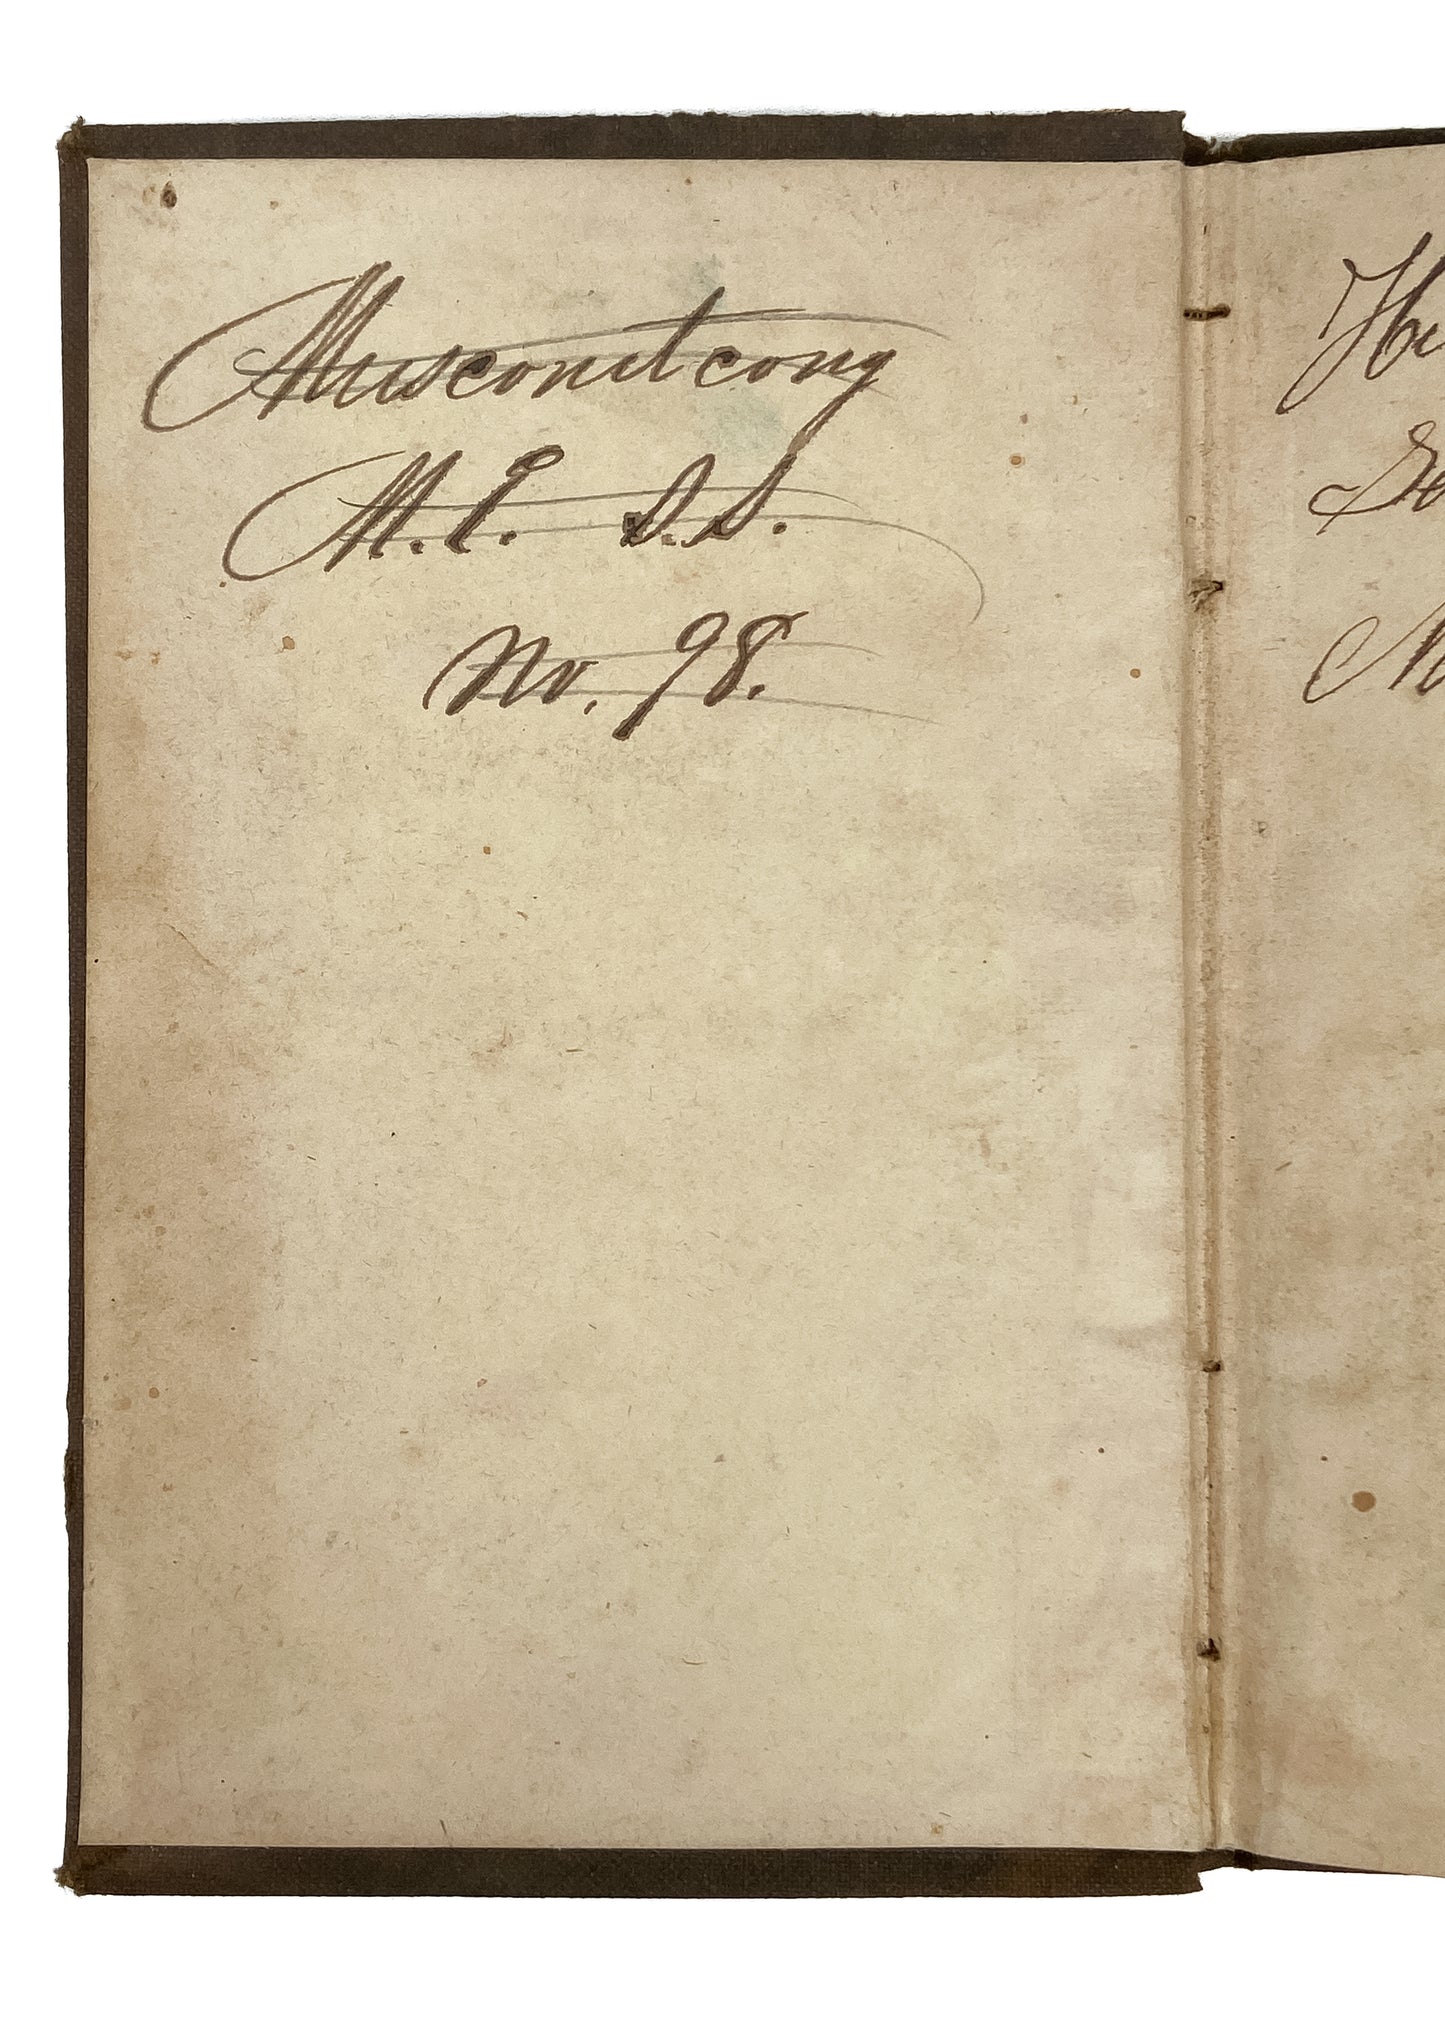 Musconetcong
M. E. S. S.
No. 98.